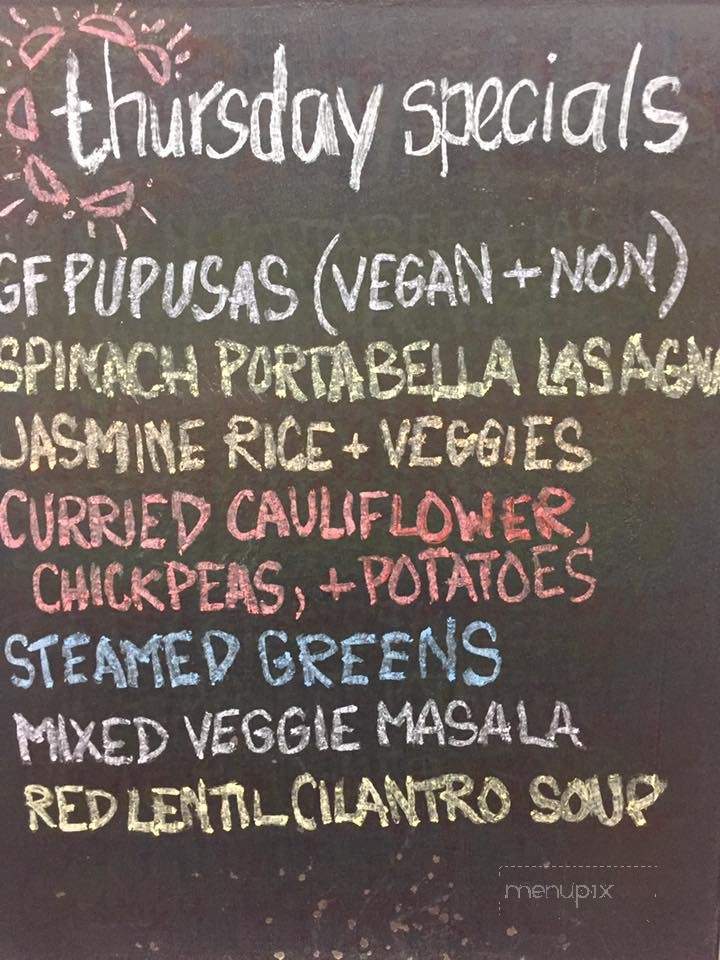 thursday specials
GF PUPUSAS (VEGAN + NON)
SPINACH PORTABELLA LASAGNA
JASMINE RICE + VEGGIES
CURRIED CAULIFLOWER,
CHICKPEAS, + POTATOES
STEAMED GREENS
MIXED VEGGIE MASALA
RED LENTIL CILANTRO SOUP
menupix